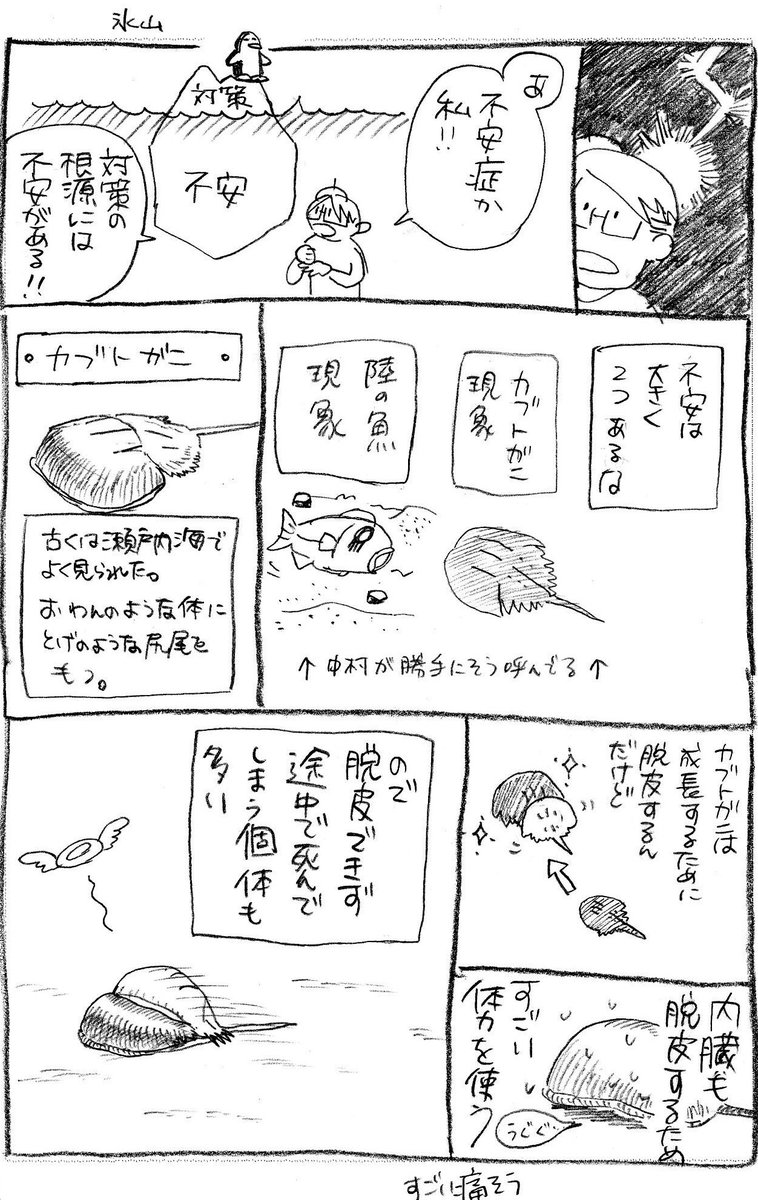 氷山
あ
不安症か
私!!
対策
不安
対策の
根源には
不安がある!!
不安は
大きく
2つあるな
カブトがに
現象
陸の魚
現象
↑中村が勝手にそう呼んでる↑
カブトがに
古くは瀬戸内海で
よく見られた。
おわんのような体に
とげのような尻尾を
もつ。
カブトガニは
成長するために
脱皮するん
だけど
内臓も
脱皮するため
すごい
体力を使う
うぐぐ…
ので
脱皮できず
途中で死んで
しまう個体も
多い
すごい痛そう